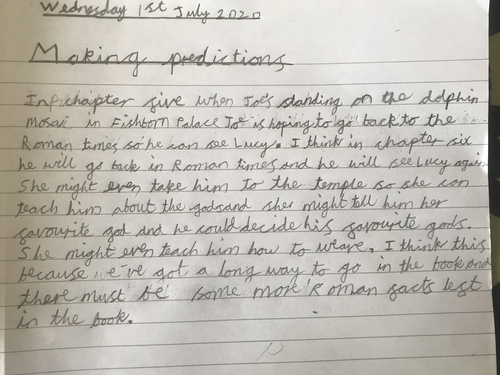 Wednesday 1st July 2020
Making predictions
In chapter five when Joe's standing on the dolphin
mosaic in Fishborn Palace Joe is hoping to go back to the
Roman times so he can see Lucy. I think in chapter six
he will go back in Roman times and he will see Lucy again.
She might even take him to the temple so she can
teach him about the gods and she might tell him her
favourite god and he could decide his favourite gods.
She might even teach him how to weave. I think this
because we've got a long way to go in the book and
there must be some more Roman facts left
in the book.